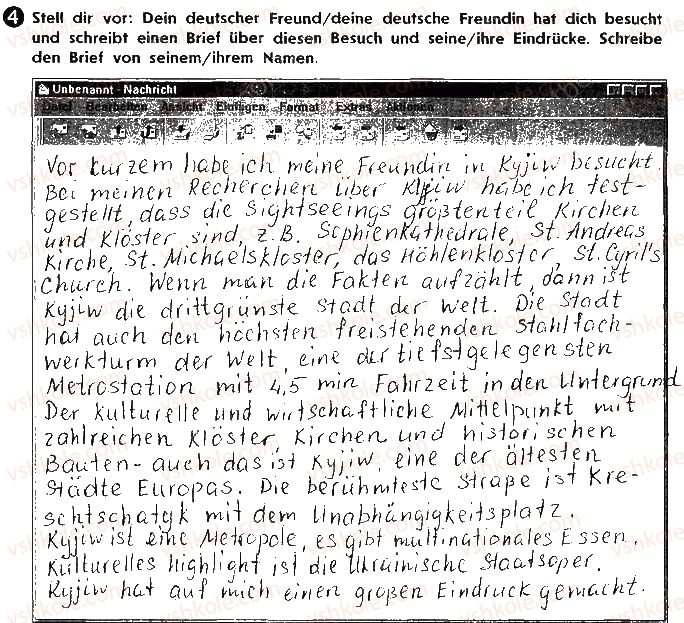 4 Stell dir vor: Dein deutscher Freund/deine deutsche Freundin hat dich besucht
und schreibt einen Brief über diesen Besuch und seine/ihre Eindrücke. Schreibe
den Brief von seinem/ihrem Namen.
Unbenannt - Nachricht
Datei Bearbeiten Ansicht Einfügen Format Extras Aktionen
Vor kurzem habe ich meine Freundin in Kyjiw besucht.
Bei meinen Recherchen über Kyjiw habe ich fest-
gestellt, dass die Sightseeings größtenteil Kirchen
und Klöster sind, z.B. Sophienkathedrale, St. Andreas
Kirche, St. Michaelskloster, das Höhlenkloster, St. Cyril's
Church. Wenn man die Fakten aufzählt, dann ist
Kyjiw die drittgrünste Stadt der Welt. Die Stadt
hat auch den höchsten freistehenden Stahlfach-
werkturm der Welt, eine der tiefstgelegensten
Metrostation mit 4,5 min Fahrzeit in den Untergrund
Der kulturelle und wirtschaftliche Mittelpunkt mit
zahlreichen Klöster, Kirchen und historischen
Bauten - auch das ist Kyjiw, eine der ältesten
Städte Europas. Die berühmteste Straße ist Kre-
schtschatyk mit dem Unabhängigkeitsplatz.
Kyjiw ist eine Metropole, es gibt multinationales Essen.
Kulturelles Highlight ist die Ukrainische Staatsoper.
Kyjiw hat auf mich einen großen Eindruck gemacht.